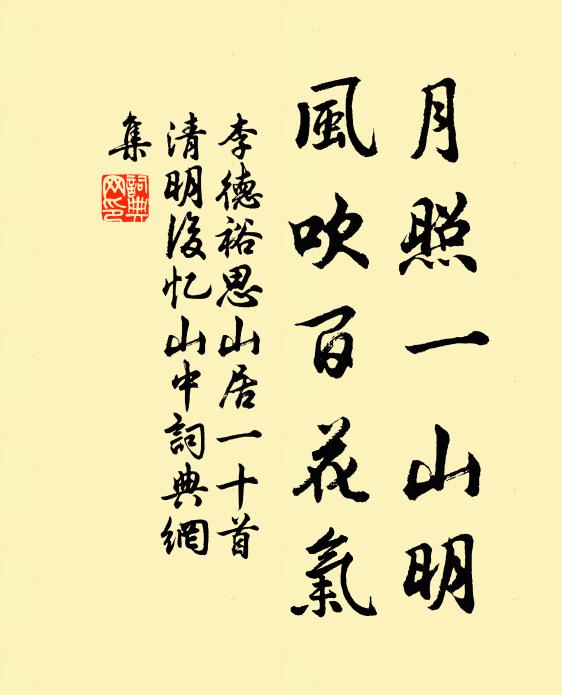 月照一山明
風吹百花氣
李德裕思山居一十首
清明後忆山中詞典網
集
詞典
网印